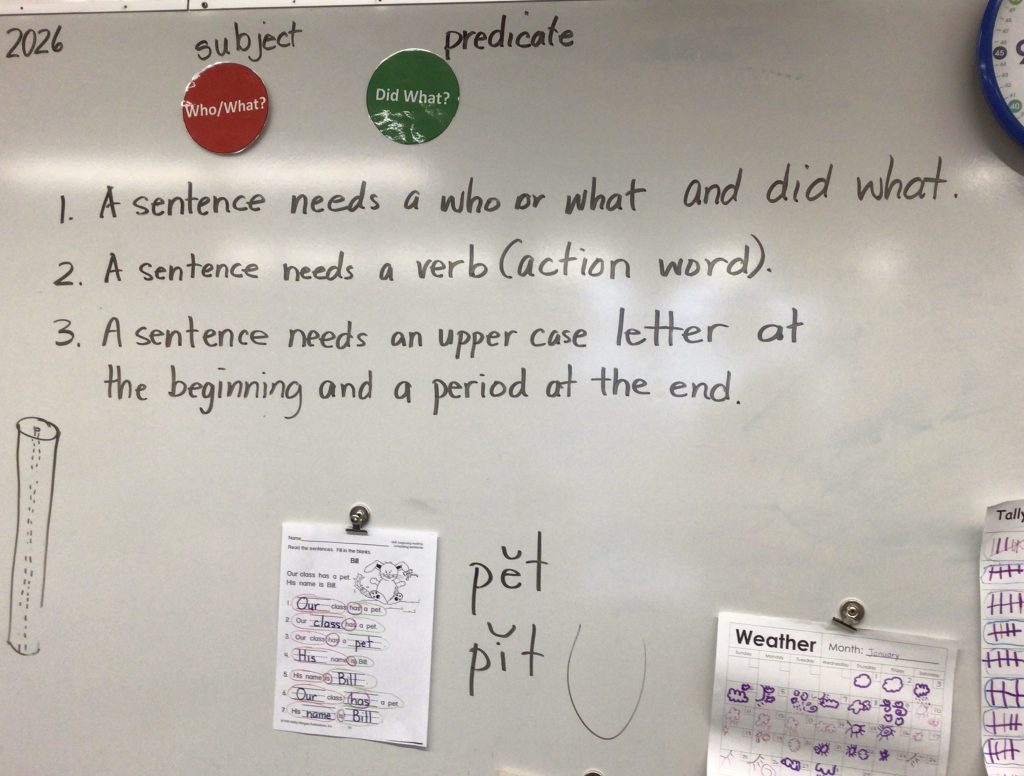 2026 subject predicate
Who/What? Did What?
1. A sentence needs a who or what and did what.
2. A sentence needs a verb (action word).
3. A sentence needs an upper case letter at
the beginning and a period at the end.
pĕt
pĭt
Name
Read the sentences. Fill in the blanks.
Bill
Our class has a pet.
His name is Bill.
1. Our class has a pet.
2. Our class has a pet.
3. Our class has a pet
4. His name is Bill.
5. His name is Bill
6. Our class has a pet.
7. His name is Bill
Weather Month: January
Sunday Monday Tuesday Wednesday Thursday Friday Saturday
Tally
45
40
9